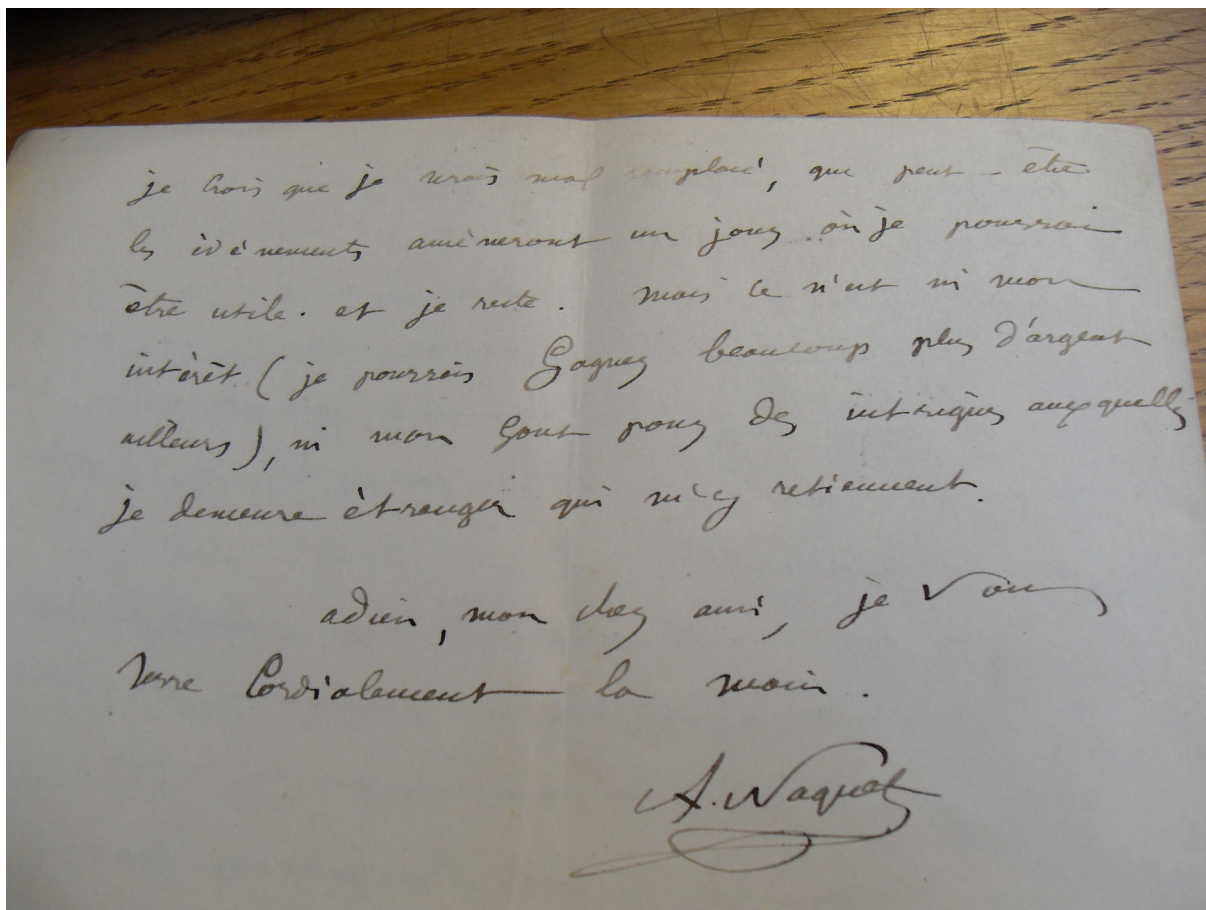 je crois que je serais mal remplacé, que peut-être
les évènements amèneront un jour où je pourrai
être utile. et je reste. Mais ce n'est ni mon
intérêt (je pourrais Gagner beaucoup plus d'argent
ailleurs), ni mon Gout pour des intrigues auxquelles
je demeure étranger qui m'y retiennent.
adieu, mon cher ami, je vous
serre Cordialement la main.
A. Naquet